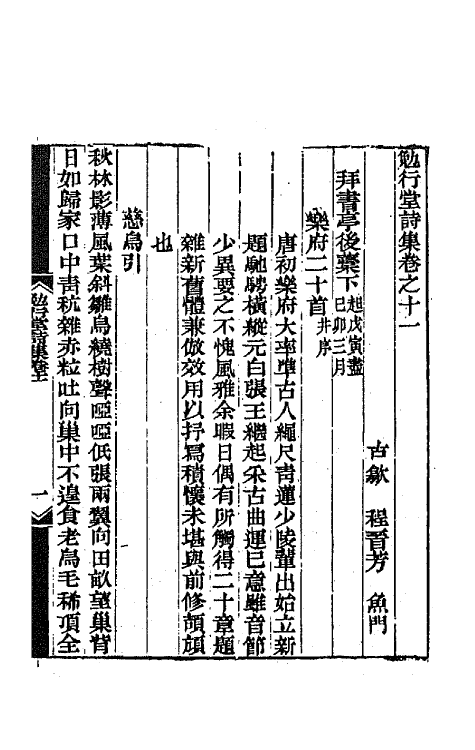 勉行堂詩集卷之十一
古歙　程晋芳　魚門
拜書亭後藁下起戊寅盡己卯三月
樂府二十首并序
唐初樂府大率準古人繩尺青蓮少陵輩出始立新
題馳騁橫縱元白張王繼起采古曲運已意雖音節
少異要之不愧風雅余暇日偶有所觸得二十章題
雜新舊體兼倣效用以抒寫積懷未堪與前修頡頏
也
慈烏引
秋林影薄風葉斜雛烏繞樹聲啞啞低張兩翼向田畝望巢背
日如歸家口中青秔雜赤粒吐向巢中不遑食老烏毛稀頂全
勉行堂詩集卷十一
一